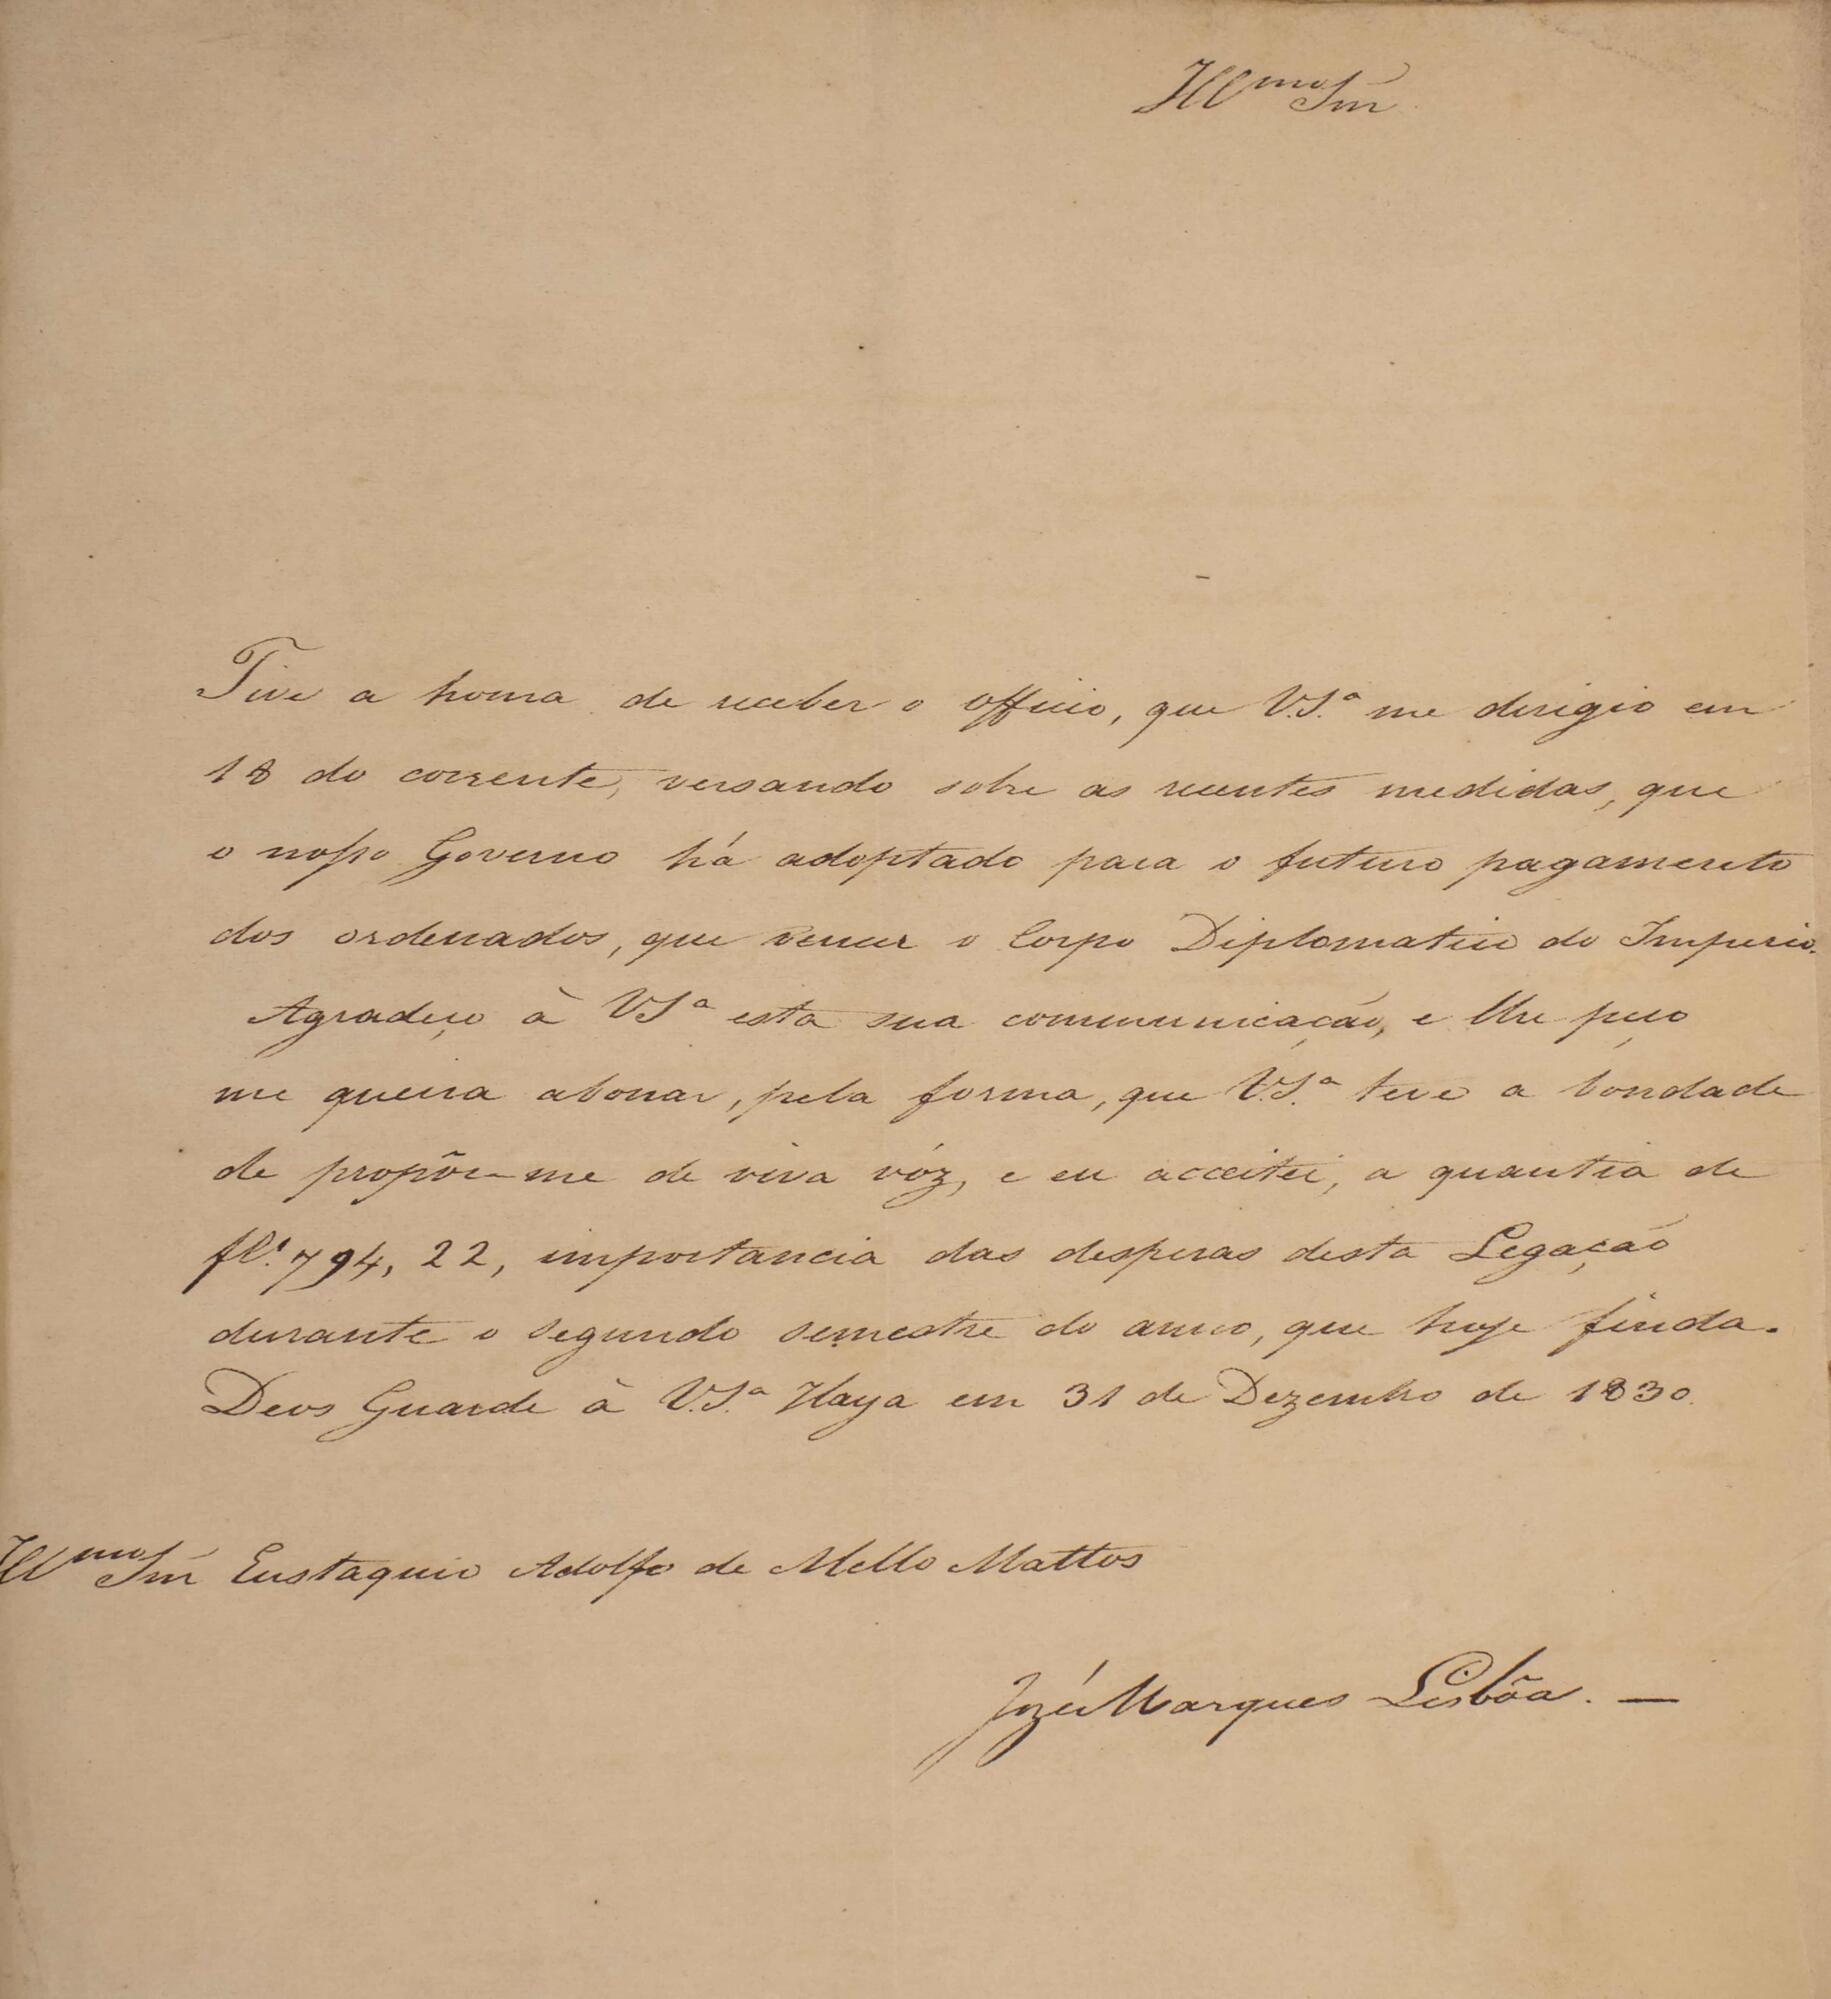 Illmo Snr
Tive a honra de receber o officio, que V.S.ª me dirigio em
18 do corrente, versando sobre as recentes medidas, que
o nosso Governo há adoptado para o futuro pagamento
dos ordenados, que vencer o Corpo Diplomatico do Imperio.
Agradeço à VSª esta sua communicação, e lhe peço
me queira abonar, pela forma, que V.S.ª teve a bondade
de propôr-me de viva vóz, e eu acceitei, a quantia de
fls. 794, 22, importancia das despezas desta Legação
durante o segundo semestre do anno, que hoje finda.
Deos Guarde à V.S.ª Haya em 31 de Dezembro de 1830.
Illmo Snr Eustaquio Adolfo de Mello Mattos
Jozé Marques Lisbôa. —